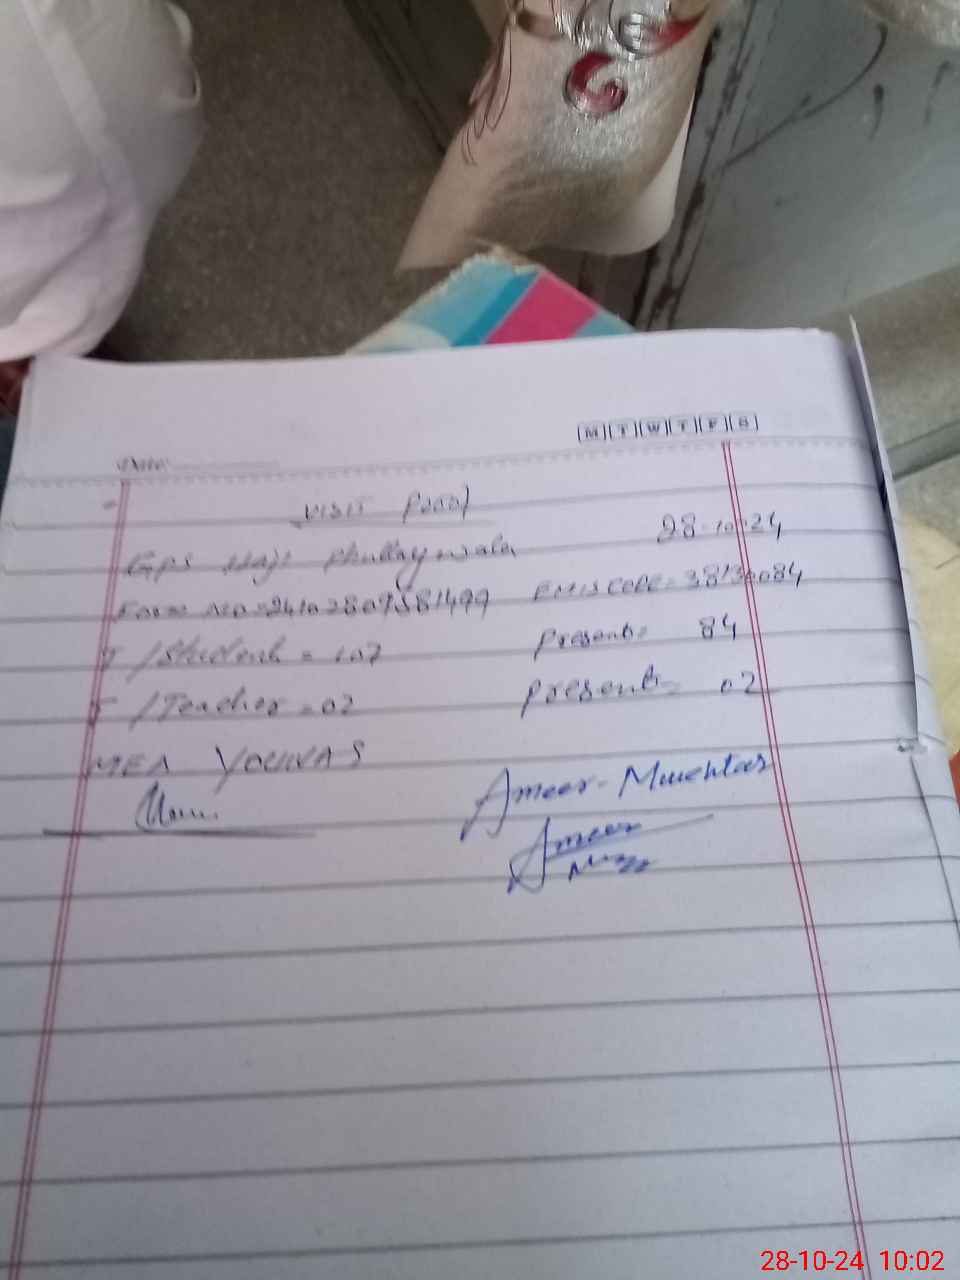 M T W T F S
Date:
VISIT Proof
GPS Haji Phullaywala 28-10-24
Form NO = EMIS CODE = 38130084
T/Student = 107 Present = 84
T/Teacher = 02 Present = 02
MEA YOUNAS
Ameer-Mukhtar
Ameer
28-10-24 10:02